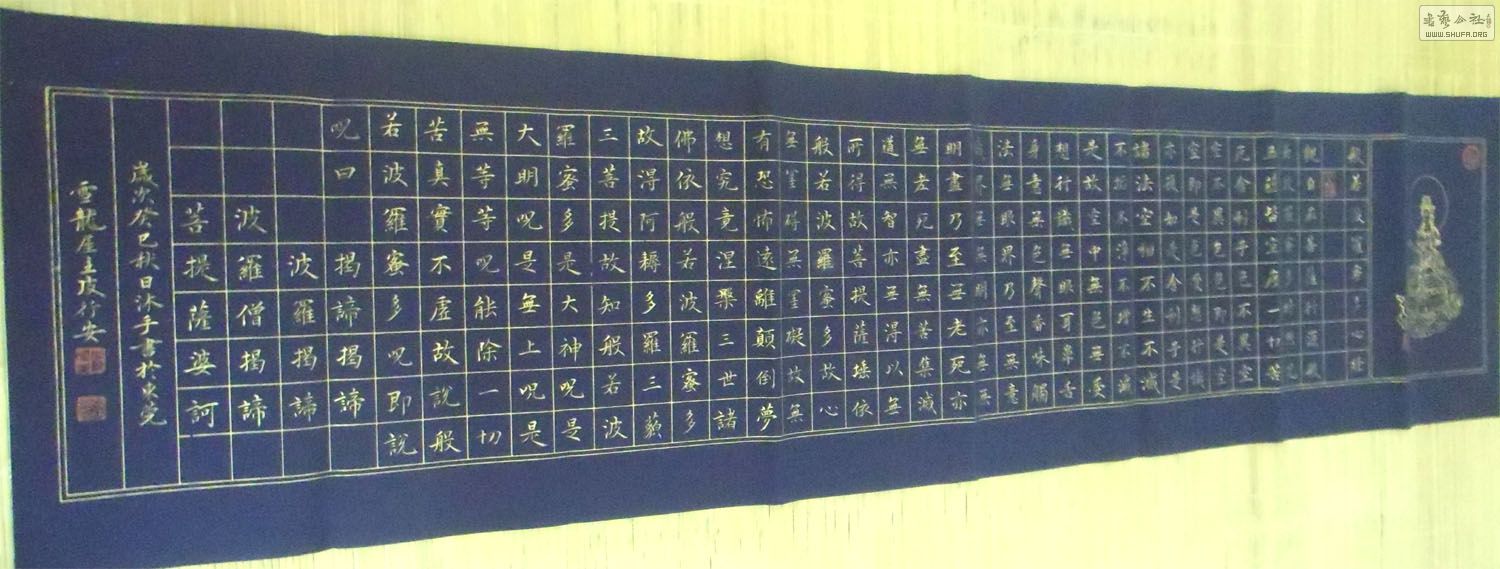 般若波羅蜜多心經
觀自在菩薩行深般
若波羅蜜多時照見
五蘊皆空度一切苦
厄舍利子色不異空
空不異色色即是空
空即是色受想行識
亦復如是舍利子是
諸法空相不生不滅
不垢不淨不增不減
是故空中無色無受
想行識無眼耳鼻舌
身意無色聲香味觸
法無眼界乃至無意
識界無無明亦無無
明盡乃至無老死亦
無老死盡無苦集滅
道無智亦無得以無
所得故菩提薩埵依
般若波羅蜜多故心
無罣碍無罣礙故無
有恐怖遠離顛倒夢
想究竟涅槃三世諸
佛依般若波羅蜜多
故得阿耨多羅三藐
三菩提故知般若波
羅蜜多是大神呪是
大明呪是無上呪是
無等等呪能除一切
苦真實不虛故說般
若波羅蜜多呪即說
呪曰 揭諦揭諦
波羅揭諦
波羅僧揭諦
菩提薩婆訶
歲次癸巳秋日沐手書於東莞
雪龍崖主皮行安
WWW.SHUFA.ORG